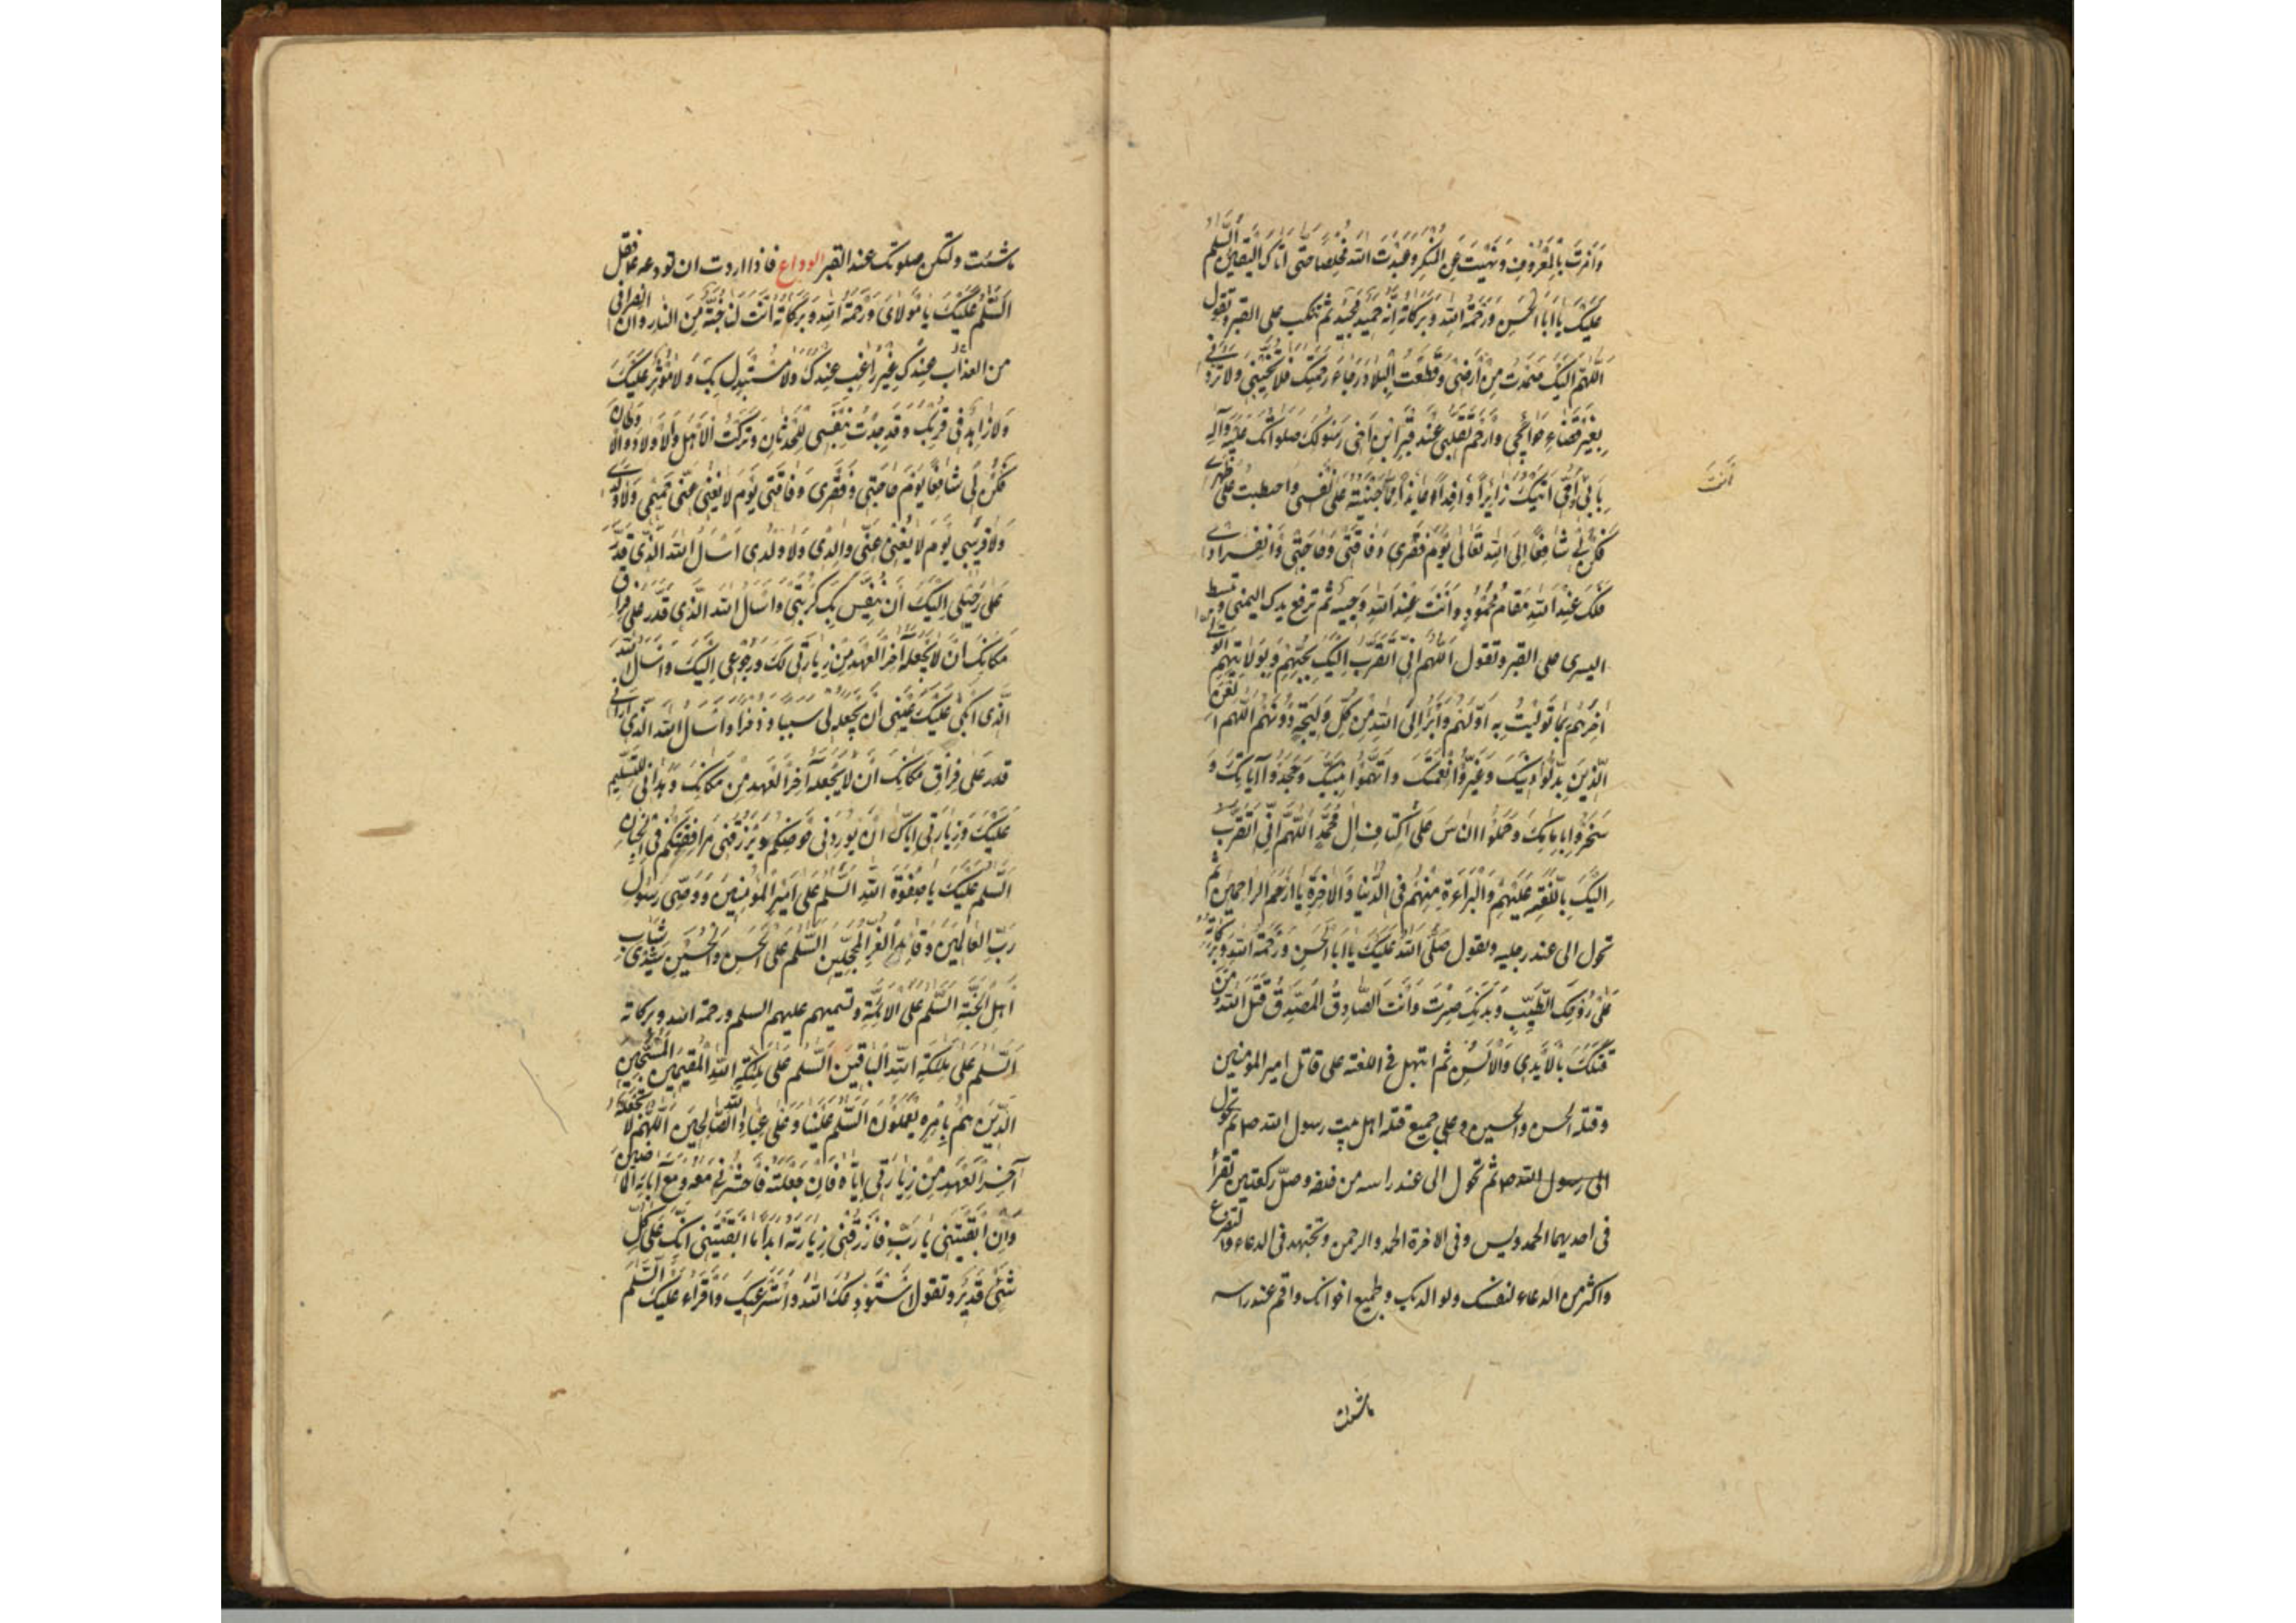 وَاَمَرْتَ بِالْمَعْرُوفِ وَنَهَيْتَ عَنِ الْمُنْكَرِ وَعَبَدْتَ اللهَ مُخْلِصًا حَتّى اَتاكَ الْيَقينُ اَلسَّلمُ
عَلَيْكَ يا اَبَا الْحَسَنِ وَرَحْمَةُ اللهِ وَبَرَكاتُهُ اِنَّهُ حَميدٌ مَجيدٌ ثم تنكب على القبر وتقول
اَللّهُمَّ اِلَيْكَ صَمَدْتُ مِنْ اَرْضى وَقَطَعْتُ الْبِلادَ رَجاءَ رَحْمَتِكَ فَلا تُخَيِّبْنى وَلا تَرُدَّنى
بِغَيْرِ قَضاءِ حَوائِجى وَارْحَمْ تَقَلُّبى عِنْدَ قَبْرِ ابْنِ اَخى رَسُولِكَ صَلَواتُكَ عَلَيْهِ وَآلِهِ
بِاَبى وَاُمّى اَتَيْتُكَ زائِراً وَافِداً عائِذاً مِمّا جَنَيْتُهُ عَلى نَفْسى واحتطبت عَلى ظَهْرى
فَكُنْ لى شافِعًا اِلَى اللهِ تَعالى يَوْمَ فَقْرى وَفاقَتى وَحاجَتى وَانْفِرادى
فَلَكَ عِنْدَ اللهِ مَقامٌ مَحْمُودٌ وَاَنْتَ عِنْدَ اللهِ وَجيهٌ ثم ترفع يدك اليمنى وتبسط
اليسرى على القبر وتقول اَللّهُمَّ اِنّى اَتَقَرَّبُ اِلَيْكَ بِحُبِّهِمْ وَبِوِلايَتِهِمْ اَتَوَلّى
اخِرَهُمْ بِما تَوَلَّيْتُ بِهِ اَوَّلَهُمْ وَاَبْرَأُ اِلَى اللهِ مِنْ كُلِّ وَليجَةٍ دُونَهُمْ اَللّهُمَّ الْعَنِ
الَّذينَ بَدَّلُوا دينَكَ وَغَيَّرُوا نِعْمَتَكَ وَاتَّهَمُوا نَبِيَّكَ وَجَحَدُوا آياتِكَ وَ
سَخِرُوا بِاِمامِكَ وَحَمَلُوا النّاسَ عَلى اَكْتافِ الِ مُحَمَّدٍ اَللّهُمَّ اِنّى اَتَقَرَّبُ
اِلَيْكَ بِاللَّعْنَةِ عَلَيْهِمْ وَالْبَراءَةِ مِنْهُمْ فِى الدُّنْيا وَالْاخِرَةِ يا اَرْحَمَ الرّاحِمينَ ثم
تحول الى عند رجليه وتقول صَلَّى اللهُ عَلَيْكَ يا اَبَا الْحَسَنِ وَرَحْمَةُ اللهِ وَبَرَكاتُهُ
عَلى رُوحِكَ الطَّيِّبِ وَبَدَنِكَ صَبَرْتَ وَاَنْتَ الصّادِقُ الْمُصَدَّقُ قَتَلَ اللهُ مَنْ
قَتَلَكَ بِالْاَيْدى وَالْاَلْسُنِ ثم ابتهل فى اللعنة على قاتل امير المومنين
وقتلة الحسن والحسين وعلى جميع قتلة اهل بيت رسول الله ص ثم تحول
الى رسول الله ص ثم تحول الى عند راسه من خلفه وصلّ ركعتين تقرأ
فى احديهما الحمد ويس وفى الاخرة الحمد والرحمن وتجتهد فى الدعاء والتضرع
واكثر من الدعاء لنفسك ولوالديك ولجميع اخوانك واقم عند راسه
ماشئت
ماشئت ولتكن صلوتك عند القبر الوداع فاذا اردت ان تودعه ع فقل
اَلسَّلمُ عَلَيْكَ يا مَوْلاىَ وَرَحْمَةُ اللهِ وَبَرَكاتُهُ اَنْتَ لنا جُنَّةٌ مِنَ النار وان انصرافى
من العذاب عِنْدَكَ غَيْرَ راغِبٍ عَنْكَ وَلا مُسْتَبْدِلٍ بِكَ وَلا مُؤْثِرٍ عَلَيْكَ
وَلا زاهِدٍ فى قُرْبِكَ وَقَدْ جُدْتُ بِنَفْسى لِلْحَدَثانِ وَتَرَكْتُ الْاَهْلَ وَالْاَوْلادَ وَالاَوْطانَ
فَكُنْ لى شافِعًا يَوْمَ حاجَتى وَفَقْرى وَفاقَتى يَوْمَ لا يُغْنى عَنّى حَميمى وَلا وَلَدى
وَلا قَريبى يَوْمَ لا يُغْنى عَنّى والِدى وَلا وَلَدى اَسْئَلُ اللهَ الَّذى قَدَّرَ
عَلَىَّ رَحيلى اِلَيْكَ اَنْ يُنَفِّسَ بِكَ كُرْبَتى وَاَسْأَلُ اللهَ الَّذى قَدَّرَ عَلَىَّ فِراقَ
مَكانِكَ اَنْ لا يَجْعَلَهُ آخِرَ الْعَهْدِ مِنْ زِيارَتى لَكَ وَرُجُوعى اِلَيْكَ وَاَسْأَلُ اللهَ
الَّذى اَبْكى عَلَيْكَ عَيْنى اَنْ يَجْعَلَهُ لى سببا وذخرا وَاَسْأَلُ اللهَ الَّذى اَرانى
قدر عَلى فِراقِ مَكانِكَ اَنْ لا يَجْعَلَهُ آخِرَ الْعَهْدِ مِنْ مَكانِكَ وَهَدانى لِلتَّسْليمِ
عَلَيْكَ وَزِيارَتى اِيّاكَ اَنْ يُورِدَنى حَوْضَكُمْ وَيَرْزُقَنى مُرافَقَتَكُمْ فِى الْجِنانِ
اَلسَّلمُ عَلَيْكَ يا صَفْوَةَ اللهِ اَلسَّلمُ عَلى اَميرِ الْمُؤْمِنينَ وَوَصِىِّ رَسُولِ
رَبِّ الْعالَمينَ وَقائِدِ الْغُرِّ الْمُحَجَّلينَ اَلسَّلمُ عَلَى الْحَسَنِ وَالْحُسَيْنِ سَيِّدَىْ شَبابِ
اَهْلِ الْجَنَّةِ اَلسَّلمُ عَلَى الْاَئِمَّةِ وتسميهم عليهم السلم ورحمة الله وبركاته
اَلسَّلمُ عَلى مَلئِكَةِ اللهِ الْباقينَ اَلسَّلمُ عَلى مَلئِكَةِ اللهِ الْمُقيمينَ الْمُسَبِّحينَ
الَّذينَ هُمْ بِاَمْرِهِ يَعْمَلُونَ اَلسَّلمُ عَلَيْنا وَعَلى عِبادِ اللهِ الصّالِحينَ اَللّهُمَّ لا تَجْعَلْهُ
آخِرَ الْعَهْدِ مِنْ زِيارَتى اِيّاهُ فَاِنْ جَعَلْتَهُ فَاحْشُرْنى مَعَهُ وَمَعَ آبائِهِ الْماضينَ
وَاِنْ اَبْقَيْتَنى يا رَبِّ فَارْزُقْنى زِيارَتَهُ اَبَداً ما اَبْقَيْتَنى اِنَّكَ عَلى كُلِّ
شَىْءٍ قَديرٌ وتقول اَسْتَوْدِعُكَ اللهَ وَاَسْتَرْعيكَ وَاَقْرَأُ عَلَيْكَ السَّلمَ